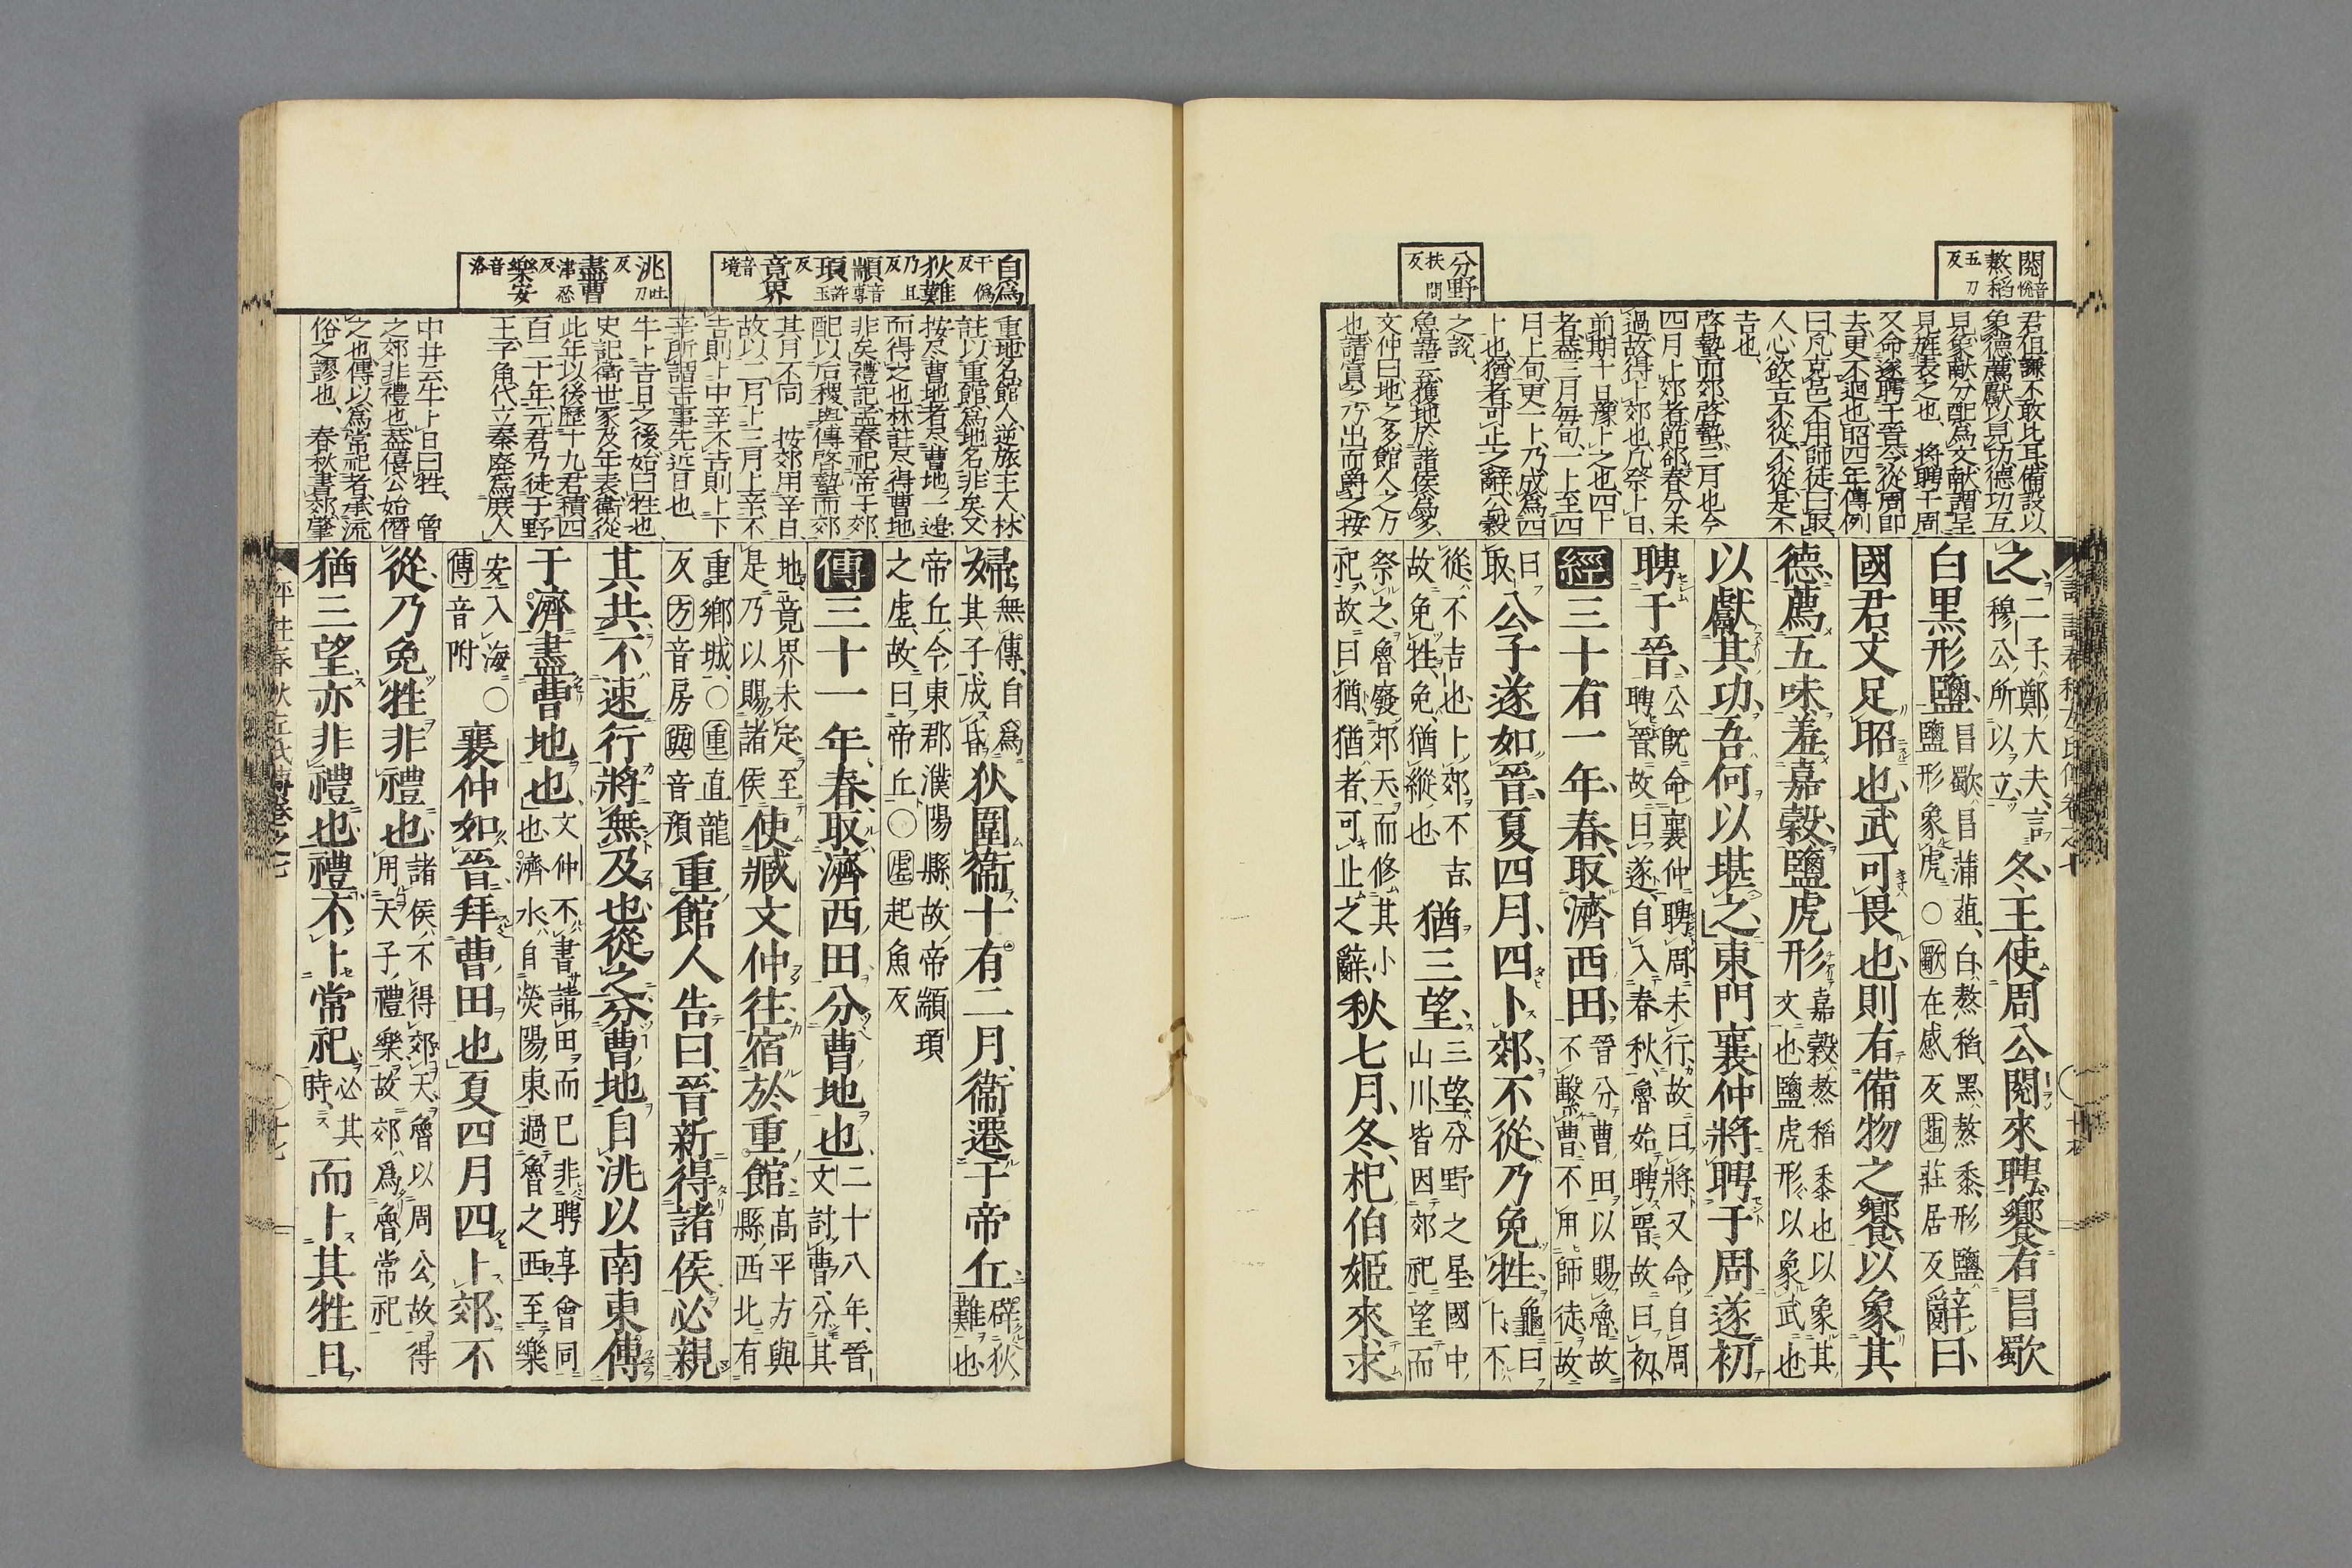 閱音悅
熬稻五刀反
分野扶問反
君但謙不敢比耳備設以
象德薦獻以見功德功互
見象獻分配為文獻謂呈
見旌表之也、將聘于周
又命遂聘于晉今從周即
去更不迴也昭四年傳例
曰凡克邑不用師徒曰取
人心欲吉不從不從是不
吉也、
啓蟄而郊啓蟄三月也今
四月卜郊者節卻春分未
過故得卜郊也凡祭卜日
前期十日豫卜之也四卜
者蓋三月每旬一卜至四
月上旬更一卜乃成為四
卜也猶者可止之辭公穀
之說、
魯語云獲地於諸侯為多
文仲曰地之多館人之力
也請賞之乃出而爵之按
之二子、鄭大夫、言穆公所以立冬、王使周公閱來聘、饗有昌歜
白黑形鹽、昌歜、昌蒲葅、白、熬稻、黑、熬黍、形鹽、鹽形象虎○歜在感反葅莊居反辭曰、
國君、文足昭也、武可畏也、則有備物之饗、以象其
德、薦五味、羞嘉穀、鹽虎形嘉穀、熬稻黍也以象其文也鹽虎形以象武也
以獻其功、吾何以堪之、東門襄仲將聘于周、遂初
聘于晉、公既命襄仲聘周、未行、故曰將、又命自周聘晉、故曰遂、自入春秋、魯始聘晉、故曰初
經三十有一年、春、取濟西田、晉分曹田以賜魯、故不繫曹、不用師徒、故曰
取公子遂如晉、夏四月、四卜郊、不從、乃免牲、龜曰從、卜不
從、不吉也、卜郊不吉、故免牲、免、猶縱也猶三望、三望、分野之星、國中山川、皆因郊祀望而
祭之、魯廢郊天、而修其小祀、故曰猶、猶者、可止之辭、秋七月、冬、杞伯姬來求
自為于偽反
狄難乃旦反
顓音專頊許玉反
竟界音境
洮吐刀反
盡曹津忍反
樂安音洛
重地名館人逆旅主人林
註以重館為地名非矣又
按尽曹地者尽曹地一邊
而得之也林註尽得曹地
非矣禮記孟春祀帝于郊
配以后稷與傳啓蟄而郊
其月不同按郊用辛日
故以二月卜三月上辛不
吉則卜中辛不吉則卜下
辛所謂吉事先近日也、
牛卜吉日之後始曰牲也
史記衛世家及年表衛從
此年以後歷十九君積四
百二十年元君乃徙于野
王子角代立秦廢為庶人
中井云牛卜日曰牲、魯
之郊非禮也蓋僖公始僭
之也傳以為常祀者承流
俗之謬也、春秋書郊肇
婦、無傳、自為其子成昏狄圍衛、十有二月、衛遷于帝丘、辟狄難也、
帝丘、今東郡濮陽縣、故帝顓頊之虛、故曰帝丘○虛起魚反
傳三十一年、春、取濟西田、分曹地也、二十八年、晉文討曹、分其
地、竟界未定、至是乃以賜諸侯使臧文仲往、宿於重館、高平方與縣西北有
重鄉城、○重直龍反方音房與音預重館人告曰、晉新得諸侯、必親
其共、不速行、將無及也、從之、分曹地、自洮以南、東傅
于濟、盡曹地也、文仲不書、請田而已、非聘享會同也、濟水自滎陽東過魯之西、至樂
安入海○傅音附襄仲如晉、拜曹田也、夏四月、四卜郊、不
從、乃免牲、非禮也、諸侯不得郊天、魯以周公故得用天子禮樂、故郊為魯常祀
猶三望、亦非禮也、禮不卜常祀、必其時、而卜其牲日、